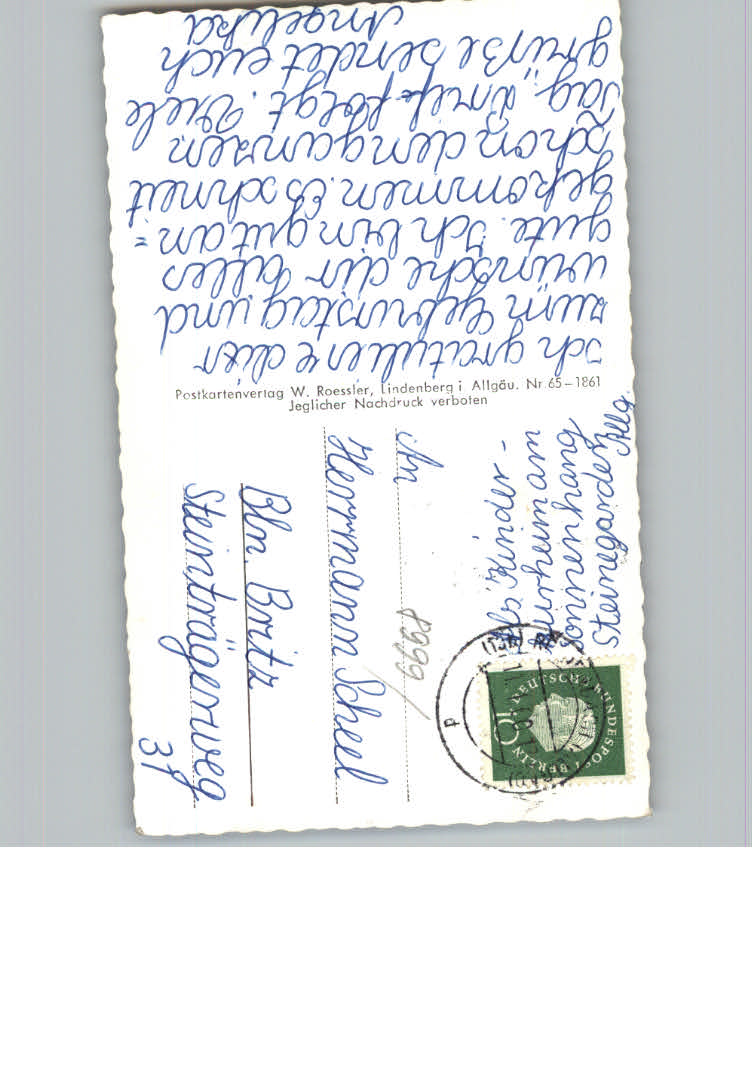 Ich gratuliere dir
zum Geburtstag und
wünsche dir alles
gute. Ich bin gut an=
gekommen. Es schneit
schon den ganzen
Tag. Brief folgt. Viele
grüße sendet euch
Angelika
Postkartenverlag W. Roessler, Lindenberg i. Allgäu. Nr. 65–1861
Jeglicher Nachdruck verboten
Kinder-
kurheim am
Sonnenhang
Steinegarden
Allg.
An
Herrmann Scheel
Bln. Britz
Steinträgerweg
37
8999/
10
DEUTSCHE BUNDESPOST BERLIN